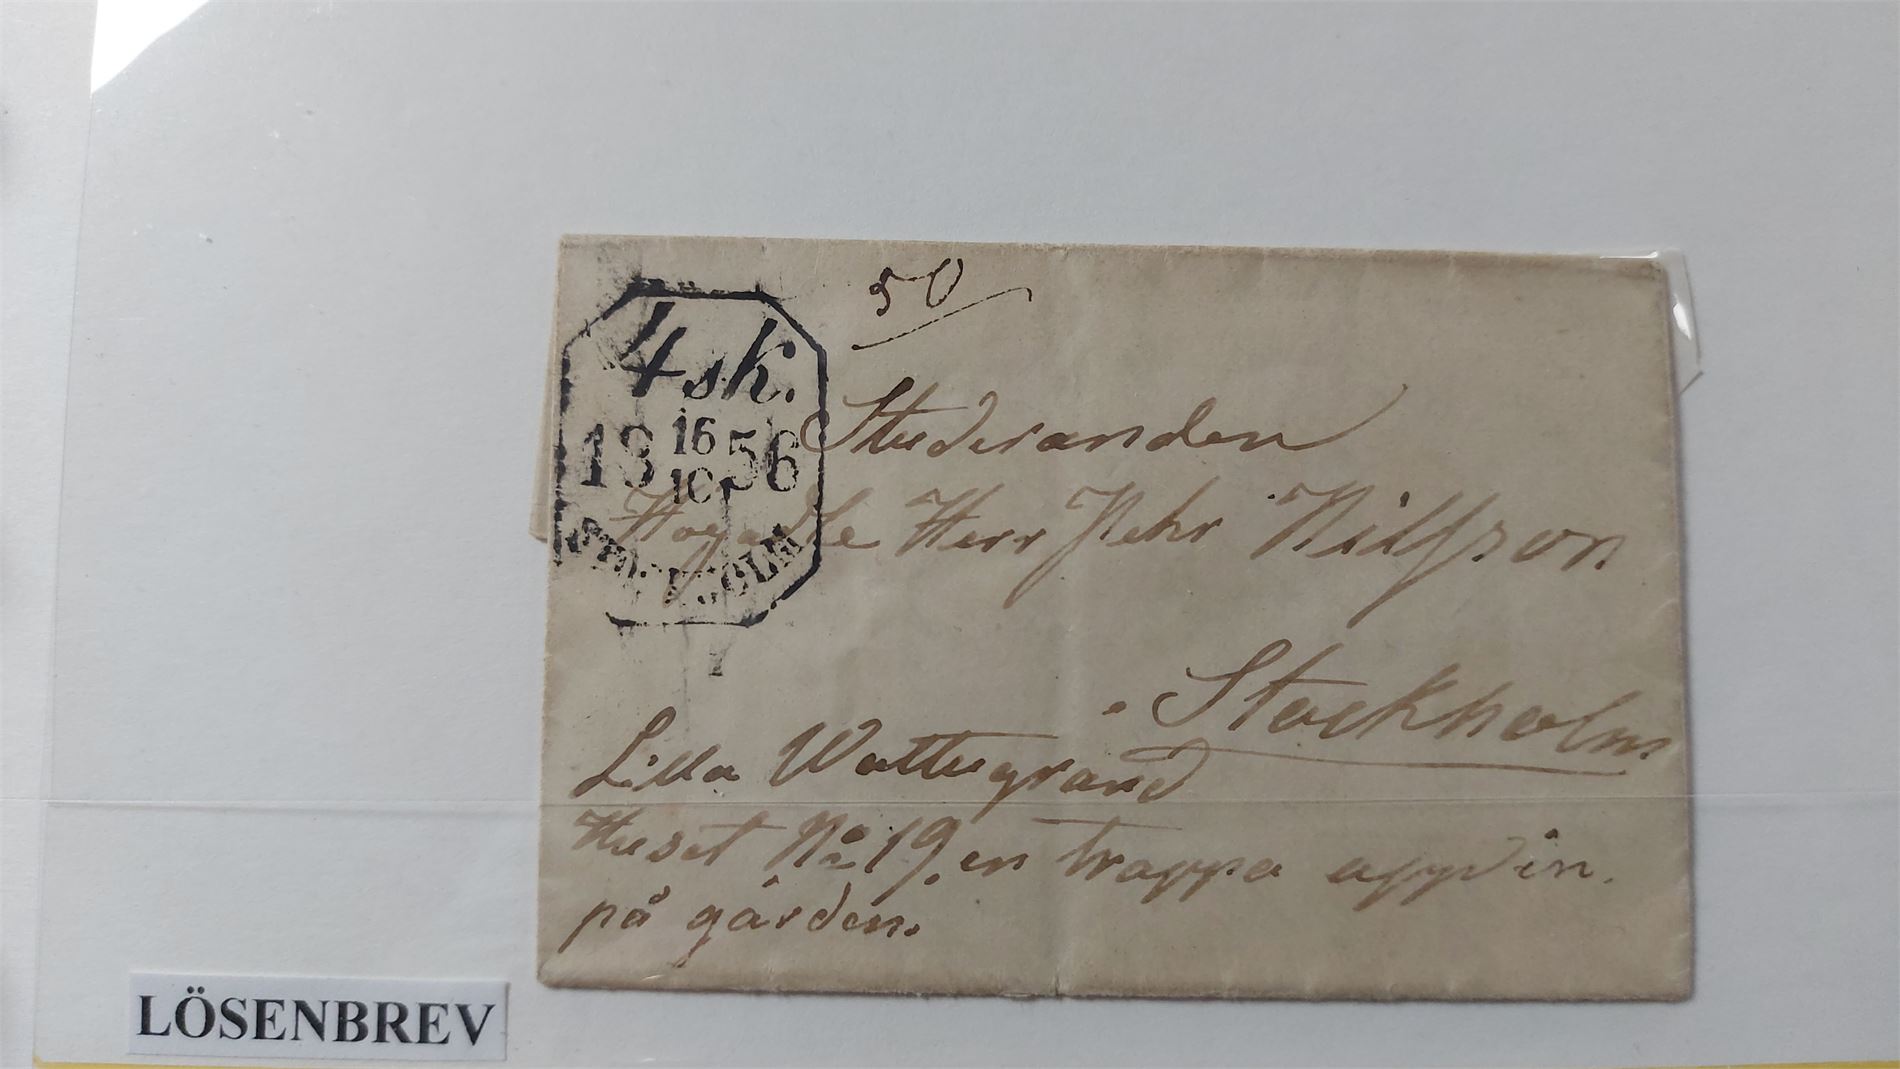 50
4 sk.
18 16/10 56
STOCKHOLM
Studeranden
Högädle Herr Pehr Nilsson
Stockholm
Lilla Wattugrand
Huset No 19 en trappa upp in
på gården.
LÖSENBREV